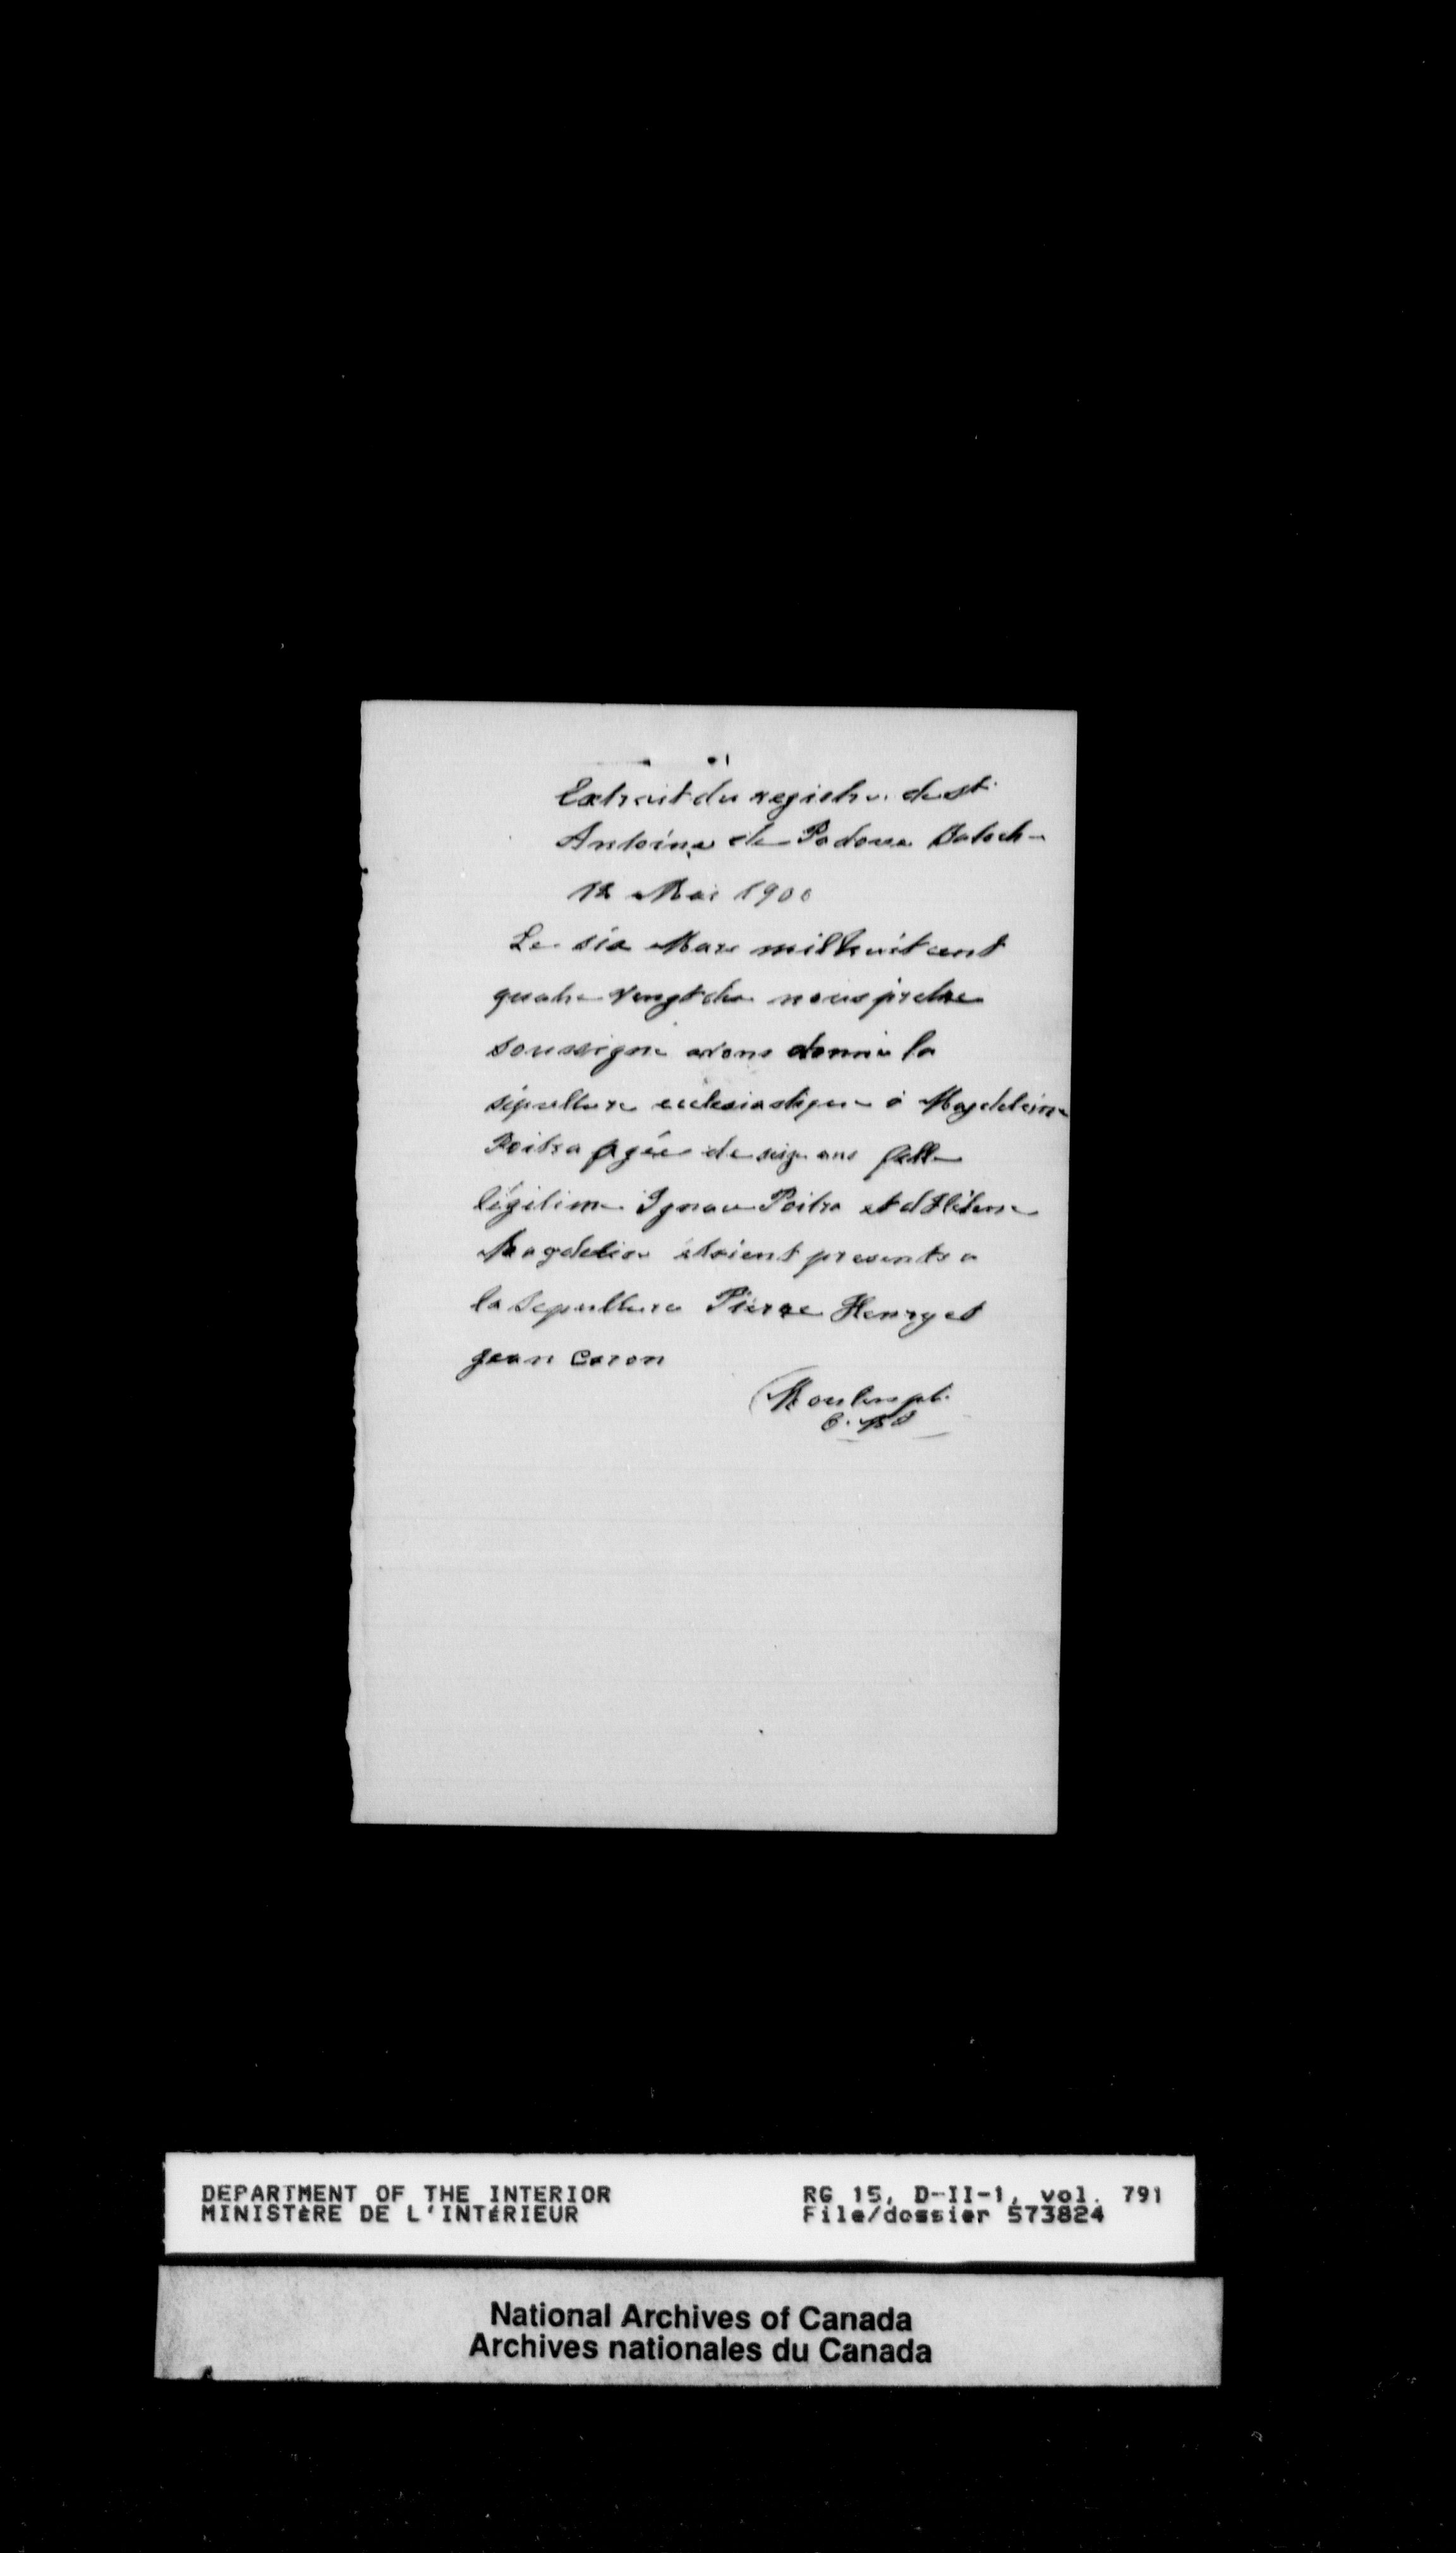 Extrait du registre de St
Antoine de Padoue Batoche
12 Mai 1900
Le six Mars mil huit cent
quatre vingt dix nous pretre
soussigne avons donné la
sépulture ecclesiastique à Magdeleine
Poitra agée de ans fille
légitime Ignace Poitra et d'Hélène
Magdeleine étaient presents a
la Sepulture Pierre Henry et
Jean Caron
Moulin pt.
DEPARTMENT OF THE INTERIOR
MINISTÈRE DE L'INTÉRIEUR
RG 15, D-II-1, vol. 791
File/dossier 573824
National Archives of Canada
Archives nationales du Canada